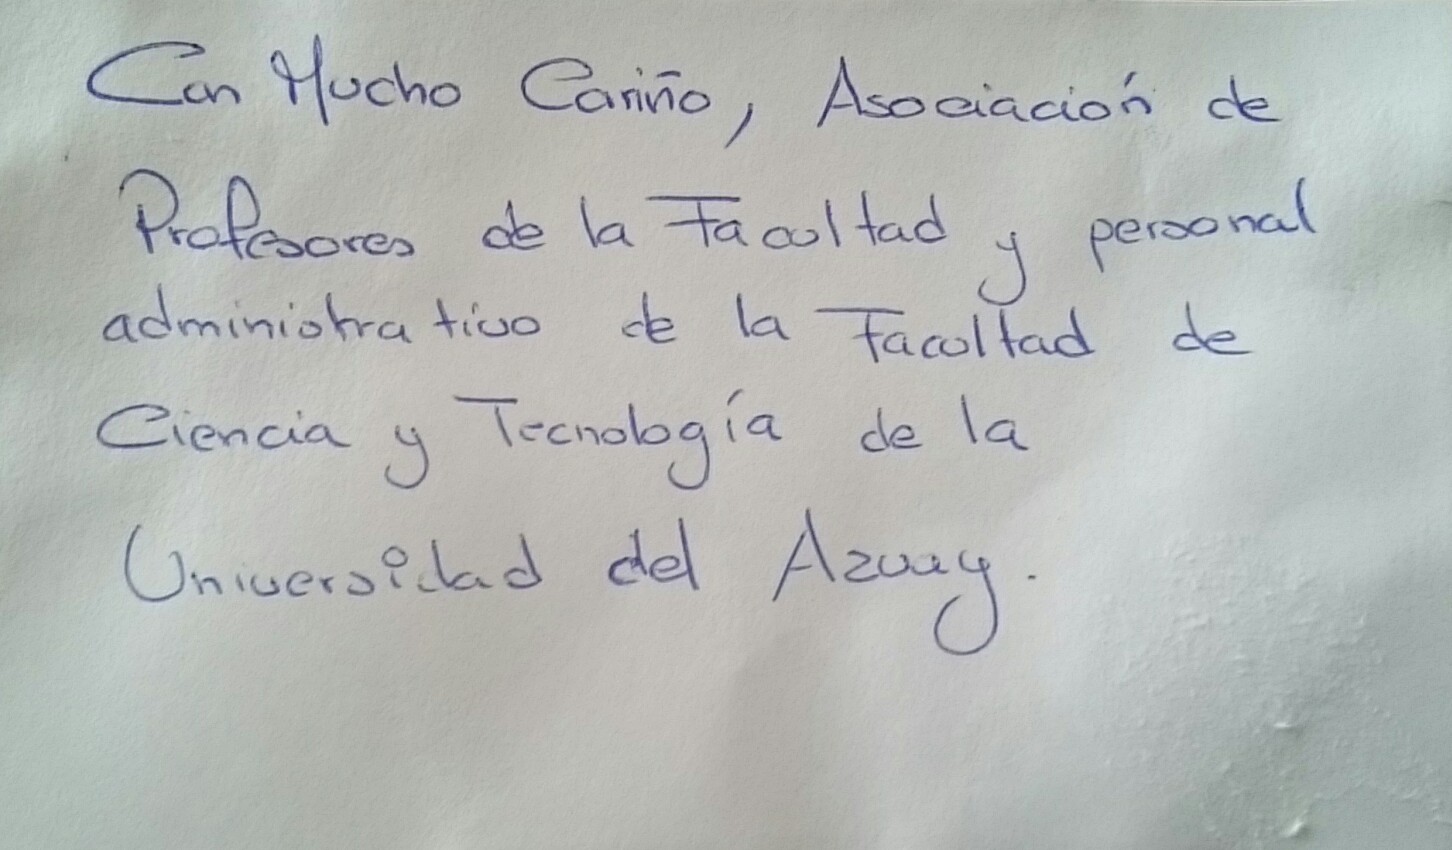 Con Mucho Cariño, Asociación de
Profesores de la Facultad y personal
administrativo de la Facultad de
Ciencia y Tecnología de la
Universidad del Azuay.